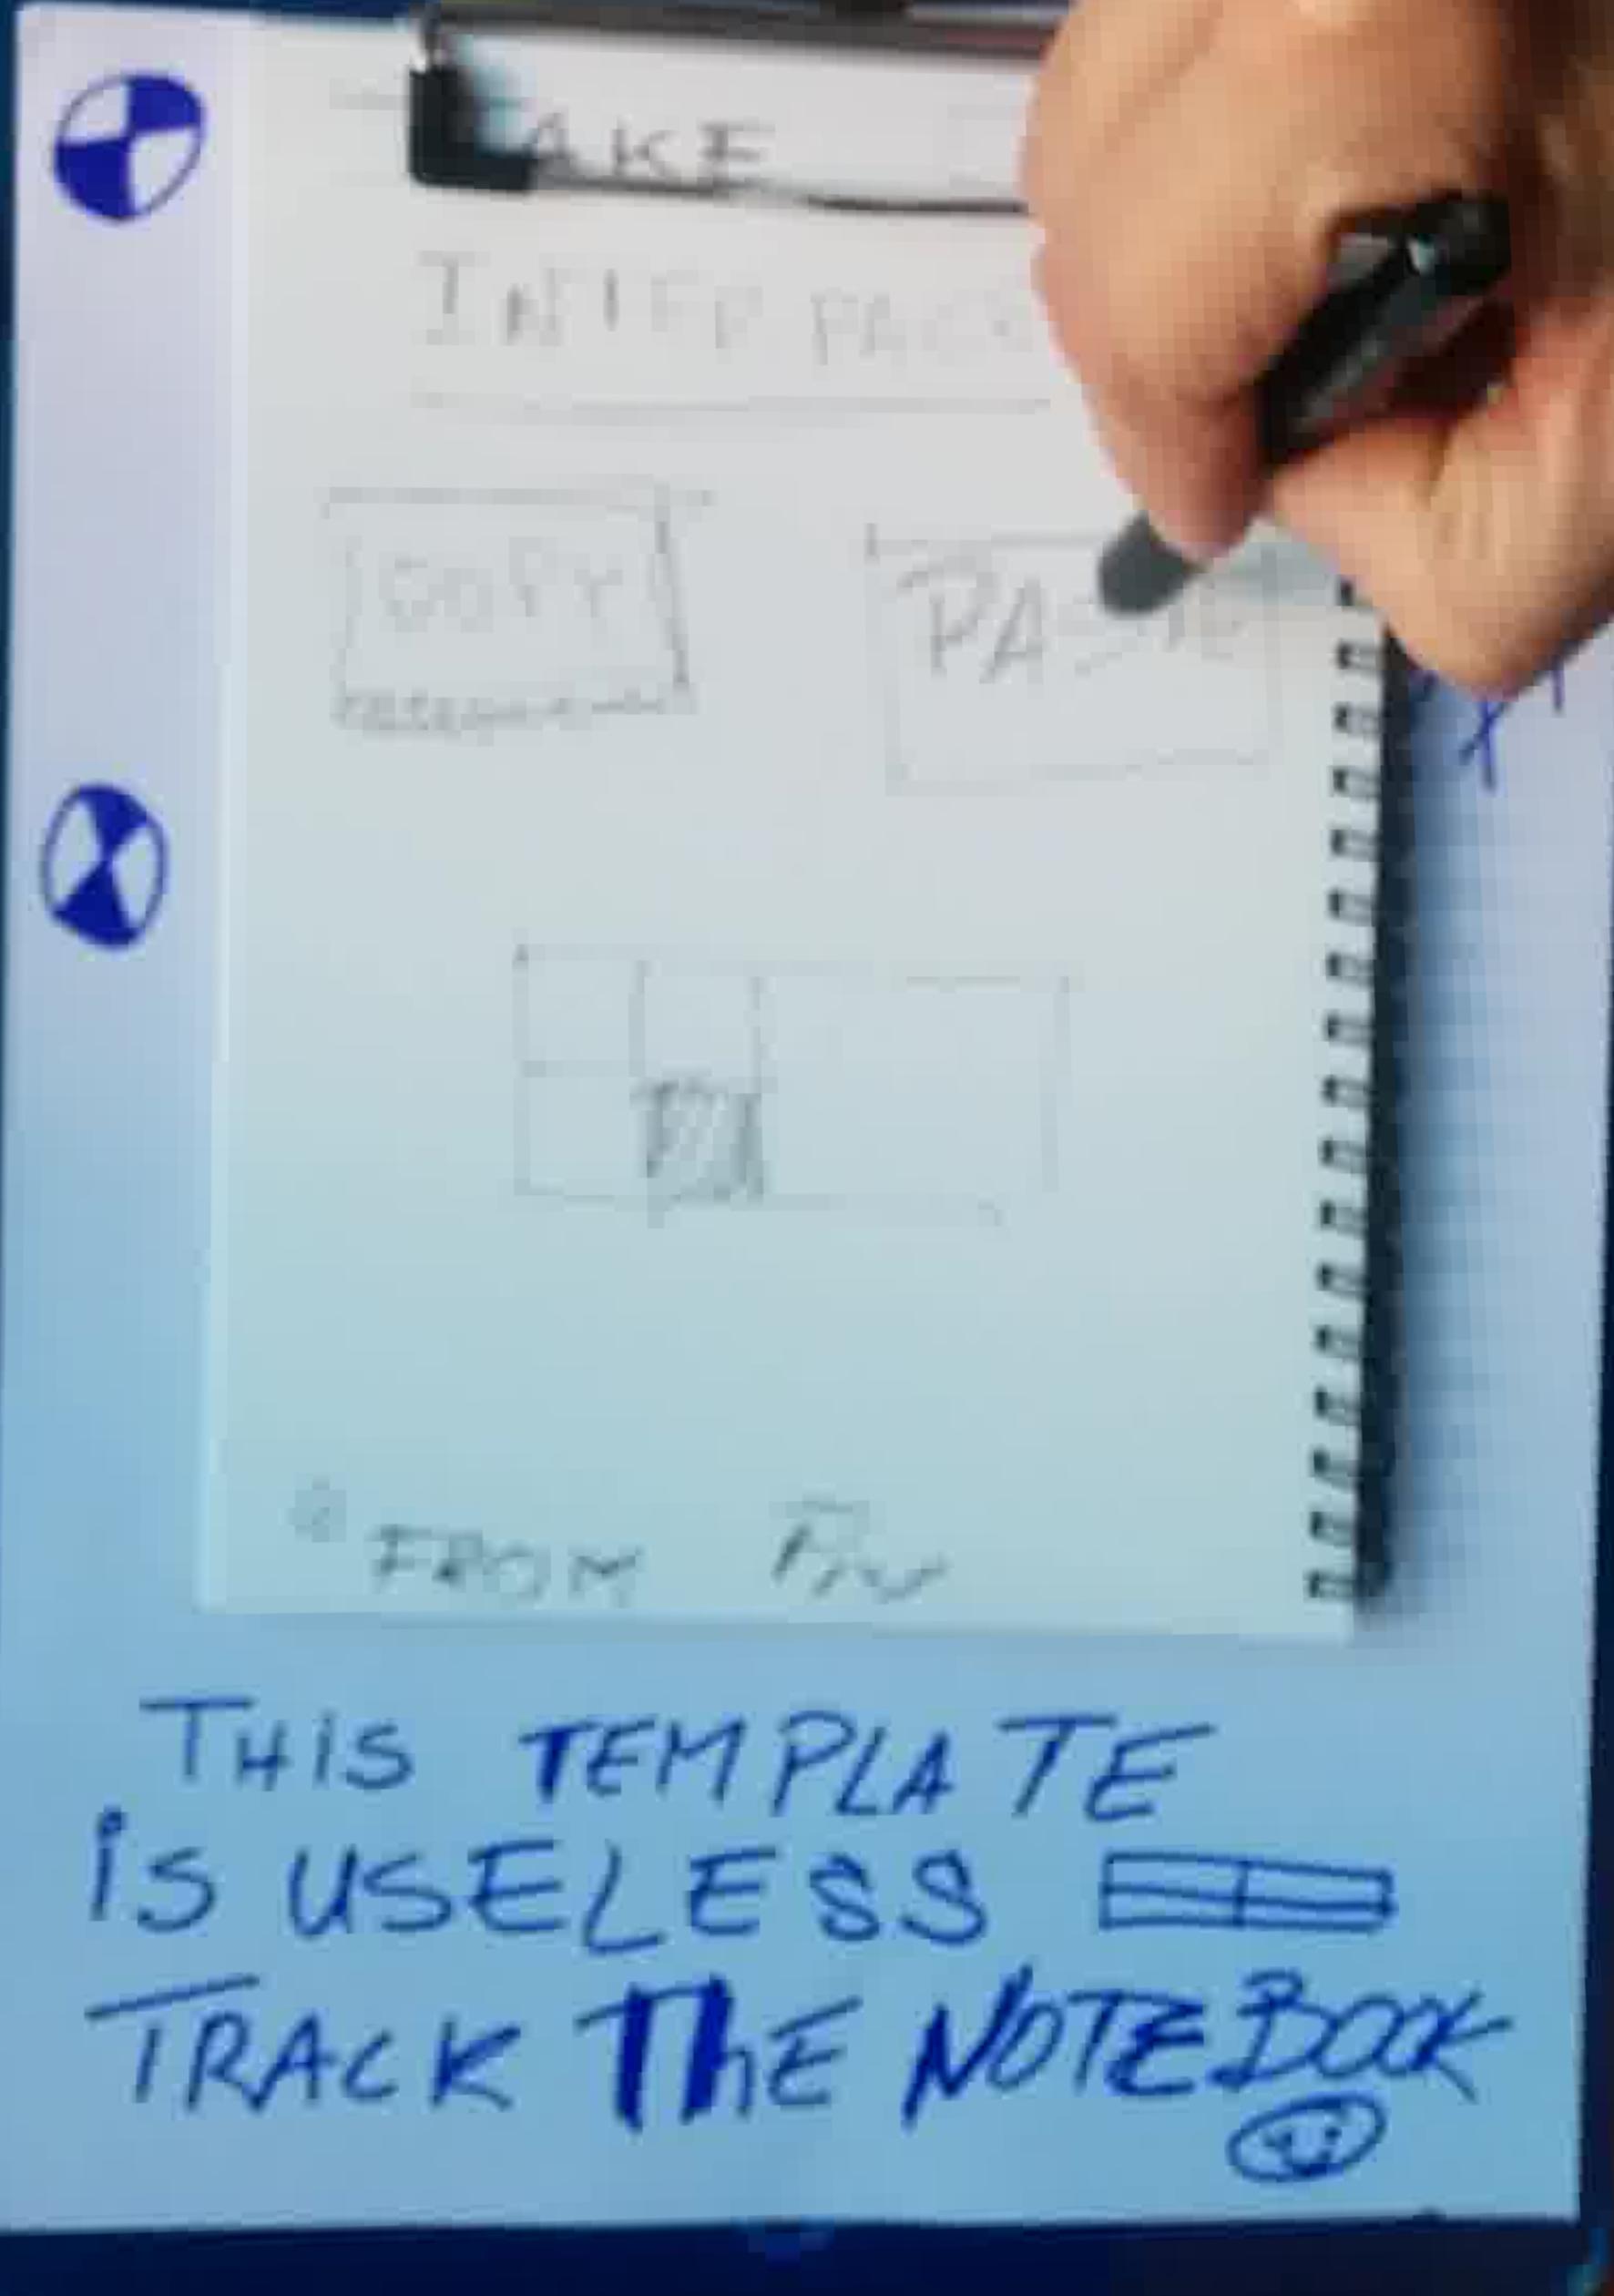 AKE
COPY
PASTE
FROM
THIS TEMPLATE
iS USELESS
TRACK ThE NOTEBOOK